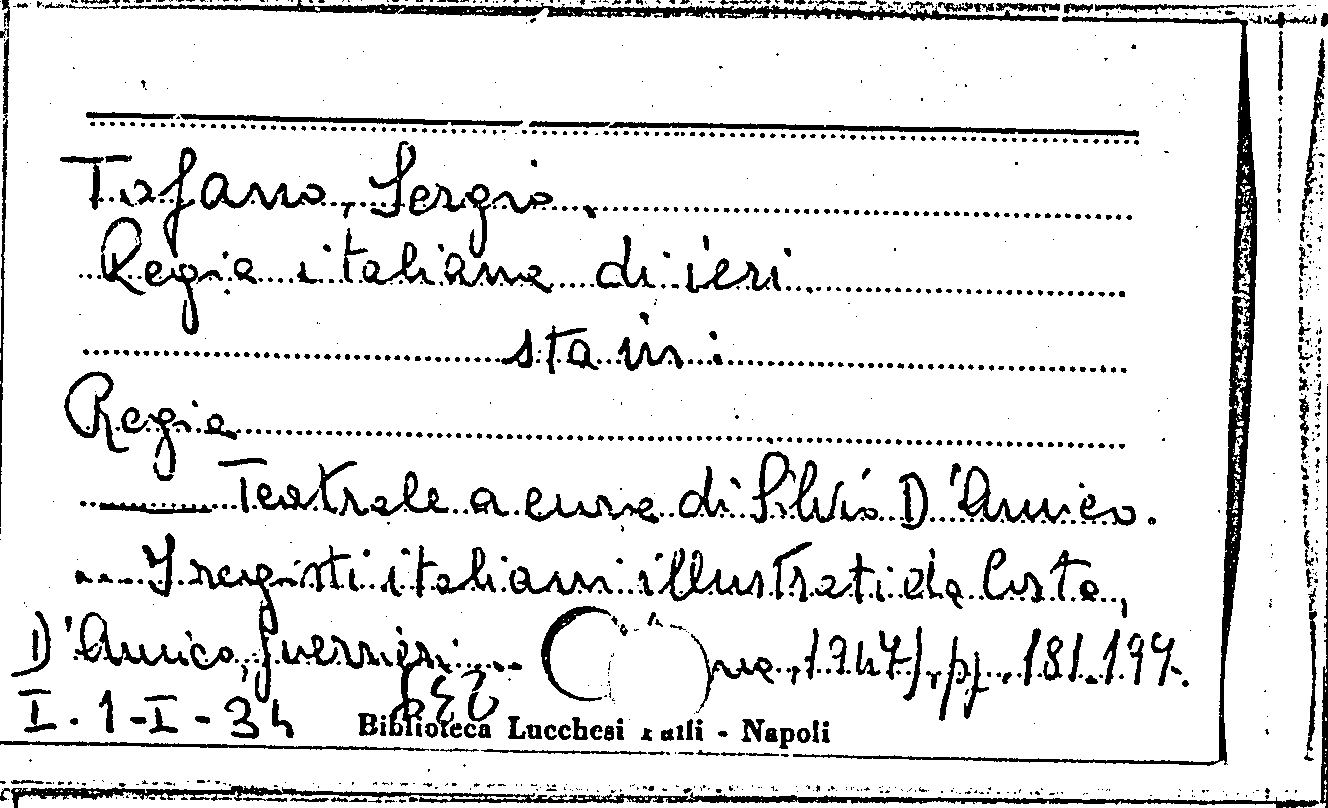 Tofano, Sergio.
Regia italiana di ieri
sta in:
Regia
Teatrale a cura di Silvio D'Amico.
I registi italiani illustrati da Costa,
D'Amico, Guerrieri, ... 1947), pp. 181-197.
I. 1-I-34
Biblioteca Lucchesi - Napoli